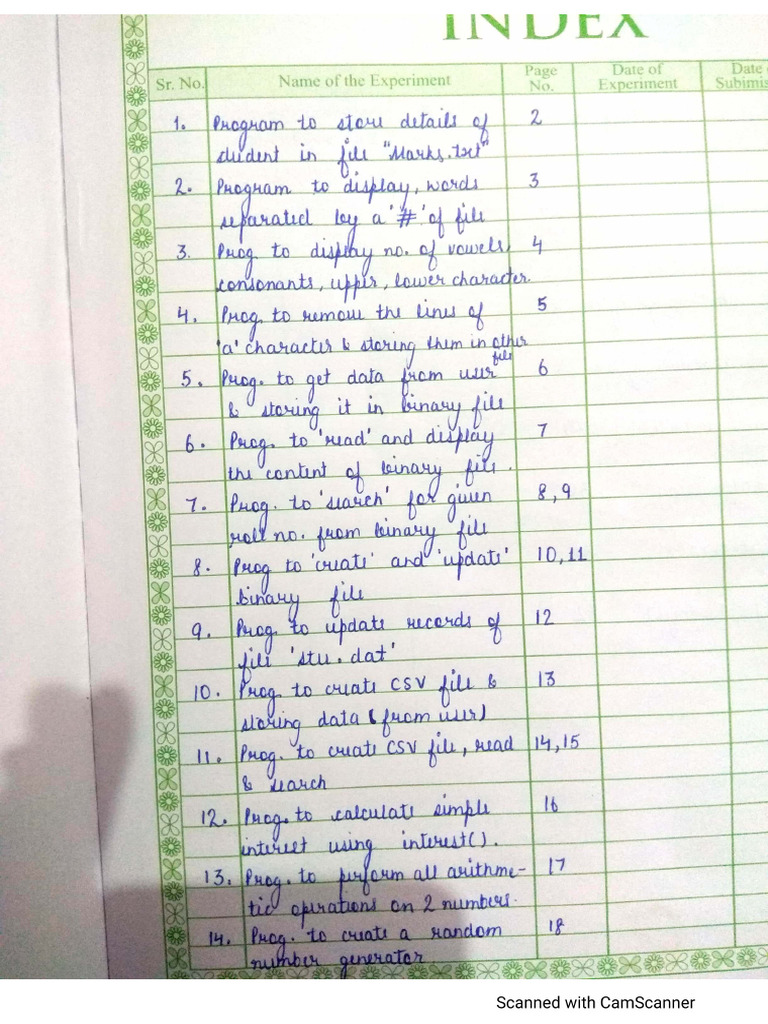 INDEX
Sr. No. Name of the Experiment Page No. Date of Experiment Date Submis
1. Program to store details of 2
student in file "Marks.txt"
2. Program to display, words 3
separated by a '#' of file
3. Prog. to display no. of vowels, 4
consonants, upper, lower character.
4. Prog. to remove the lines of 5
'a' character & storing them in other
file
5. Prog. to get data from user 6
& storing it in binary file
6. Prog. to 'read' and display 7
the content of binary file.
7. Prog. to 'search' for given 8,9
roll no. from binary file
8. Prog to 'create' and 'update' 10,11
binary file
9. Prog. to update records of 12
file 'stu.dat'
10. Prog. to create CSV file & 13
storing data (from user)
11. Prog. to create CSV file, read 14,15
& search
12. Prog. to calculate simple 16
interest using interest().
13. Prog. to perform all arithme- 17
tic operations on 2 numbers.
14. Prog. to create a random 18
number generator
Scanned with CamScanner